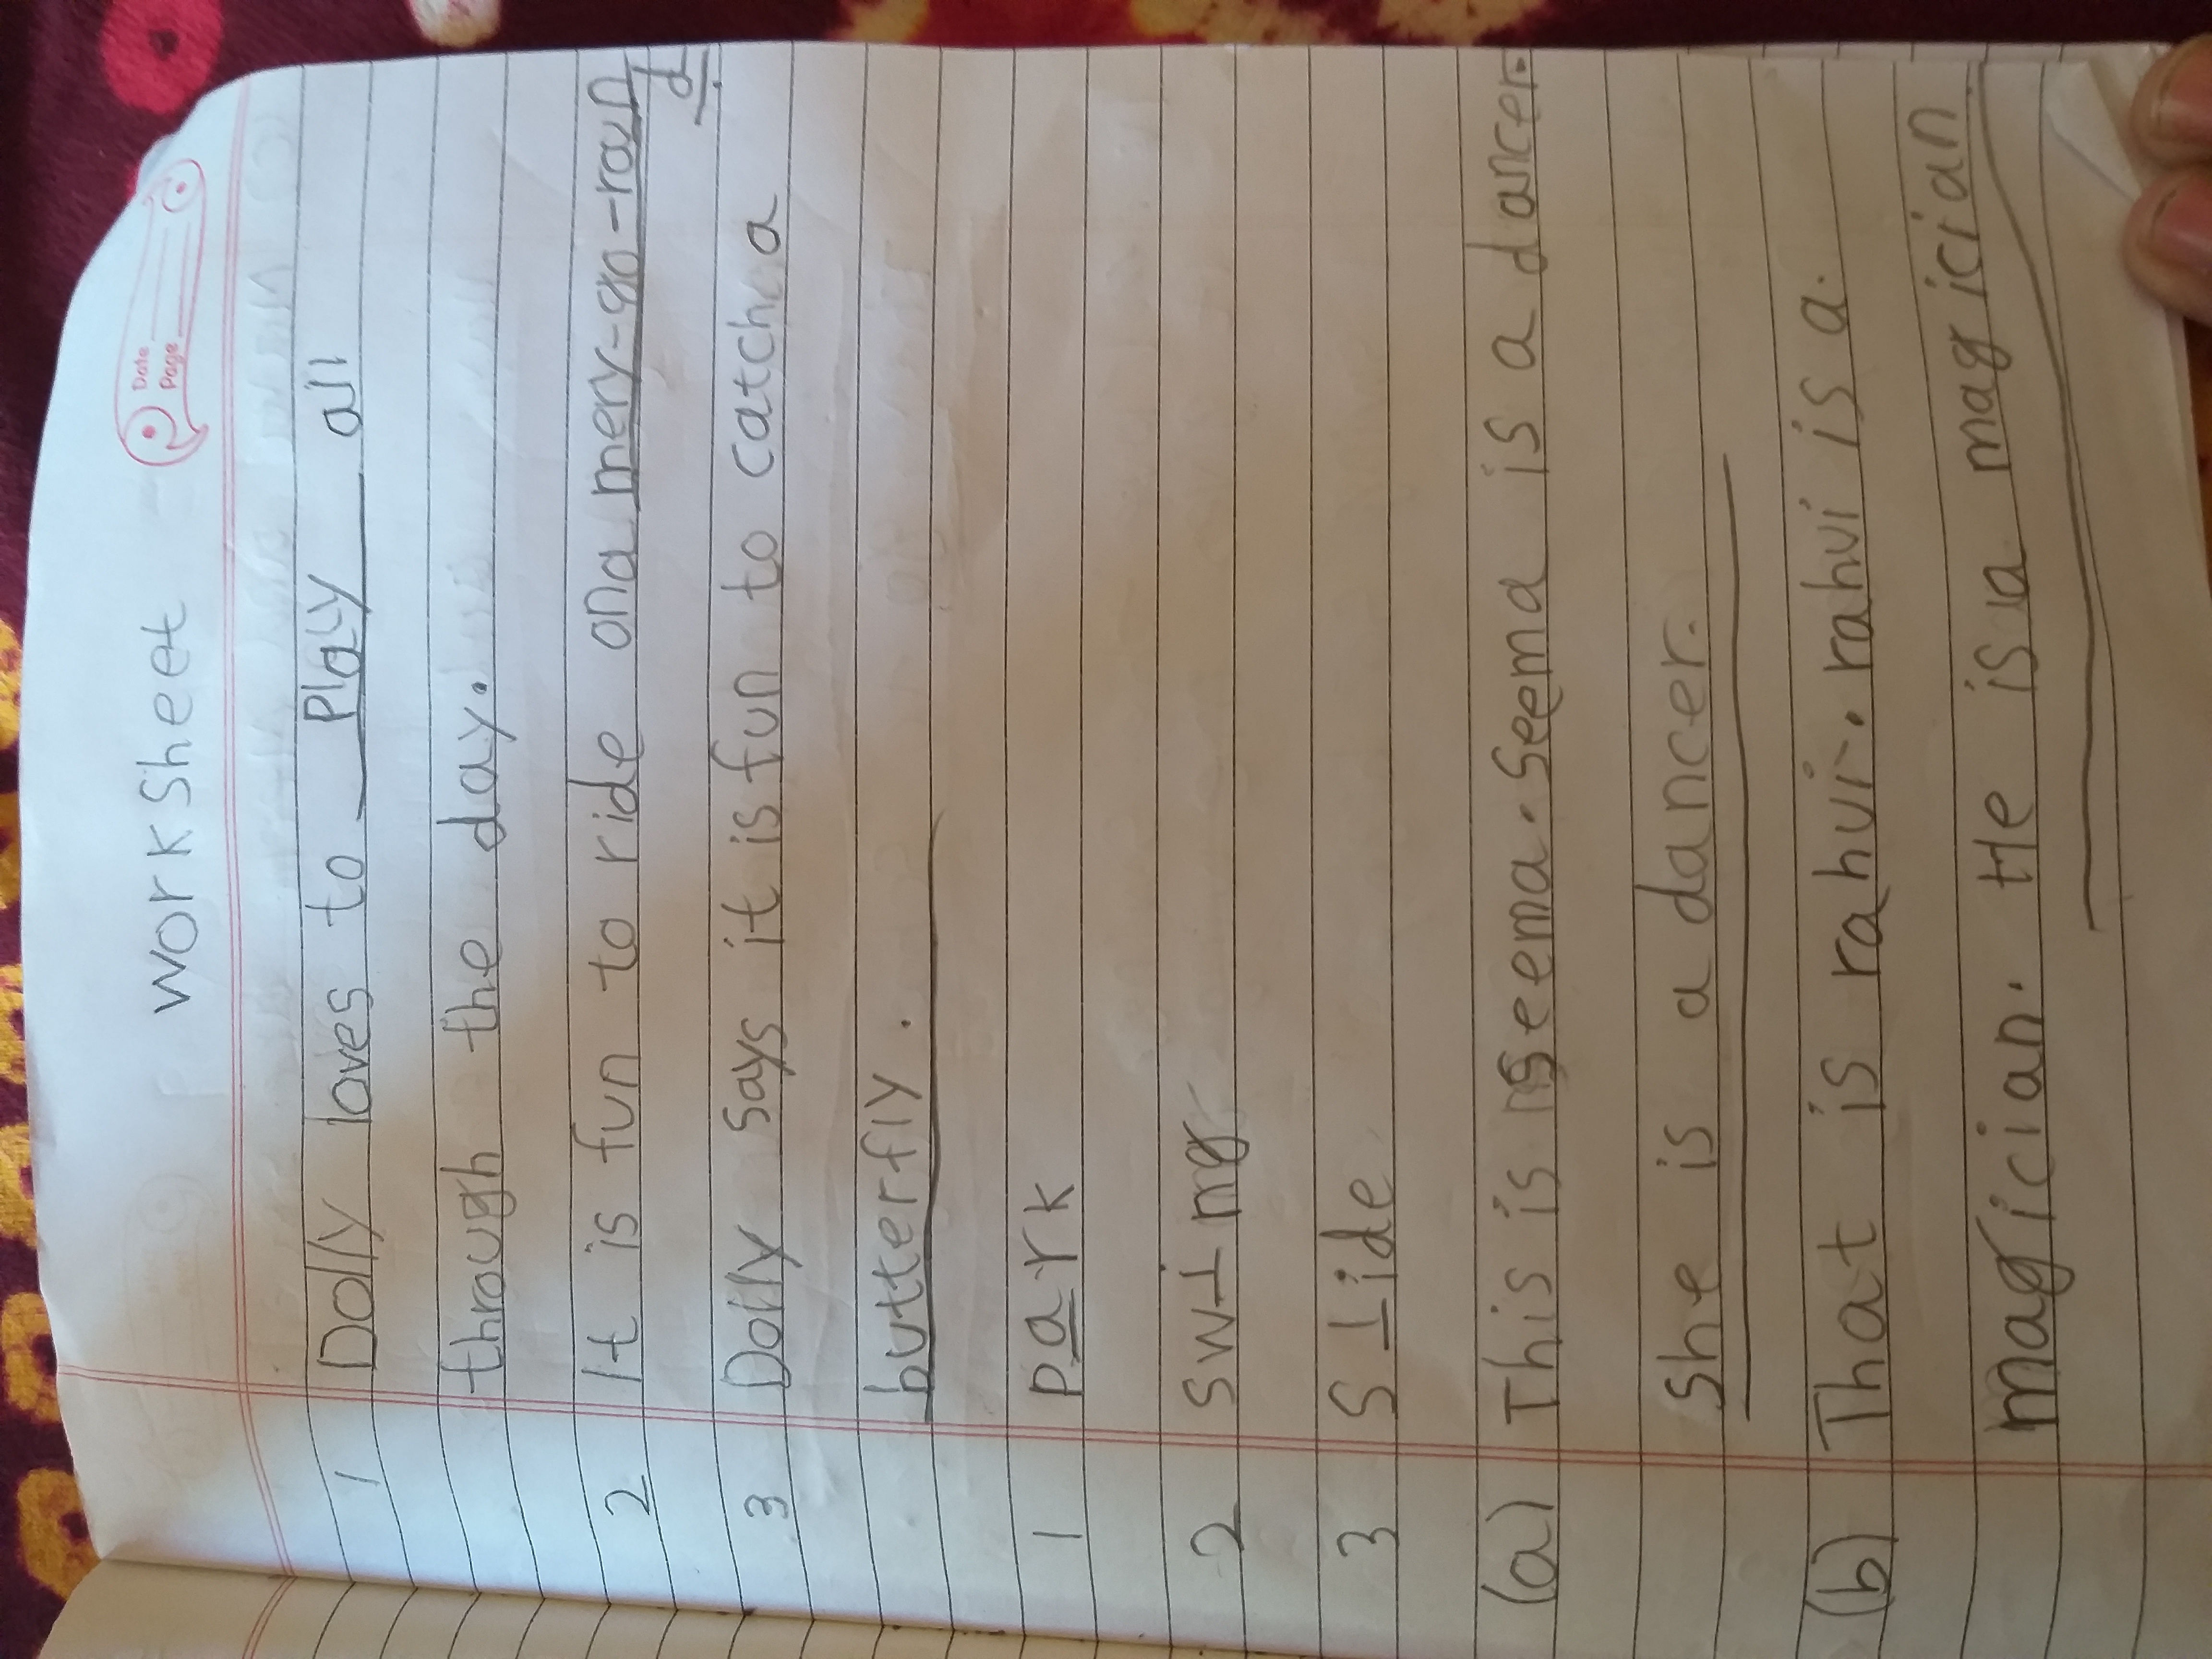 worksheet
Date
Page
1 Dolly loves to play all
through the day.
2 It is fun to ride on a mery-go-roun
d.
3 Dolly says it is fun to catch a
butterfly.
1 park
2 swing
3 slide
(a) This is seema. Seema is a dancer.
She is a dancer.
(b) That is rahui. rahui is a.
magician. He is a magician